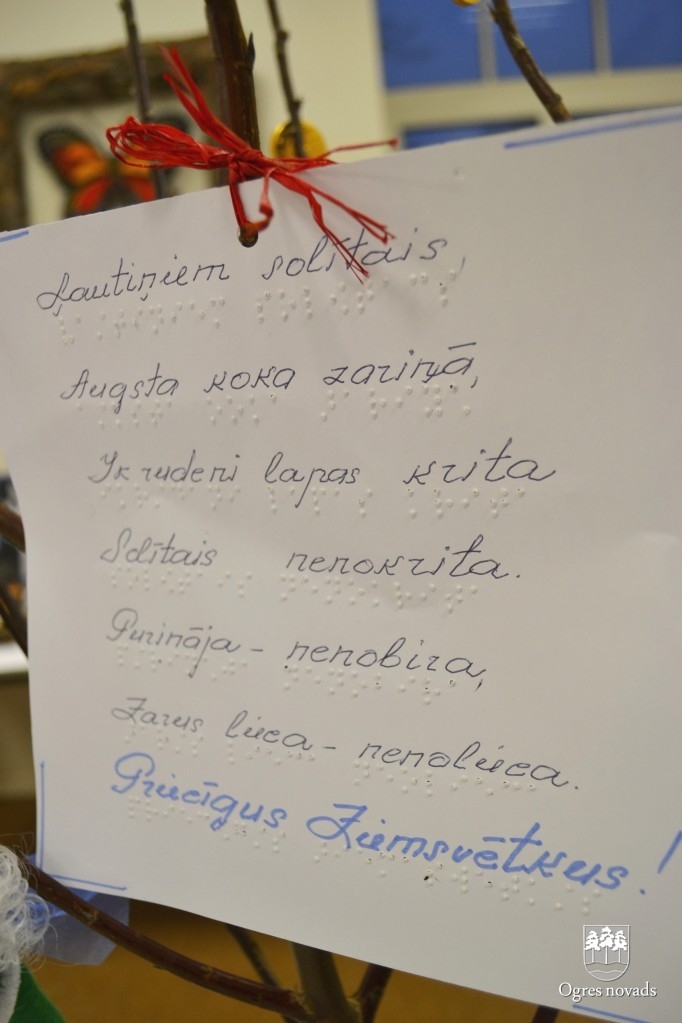 Ļautiņiem solītais,
Augsta koka zariņā,
Ik rudeni lapas krita
Solītais nenokrita.
Purināja - nenobira,
Zarus lieca - nenolieca.
Priecīgus Ziemsvētkus!
Ogres novads